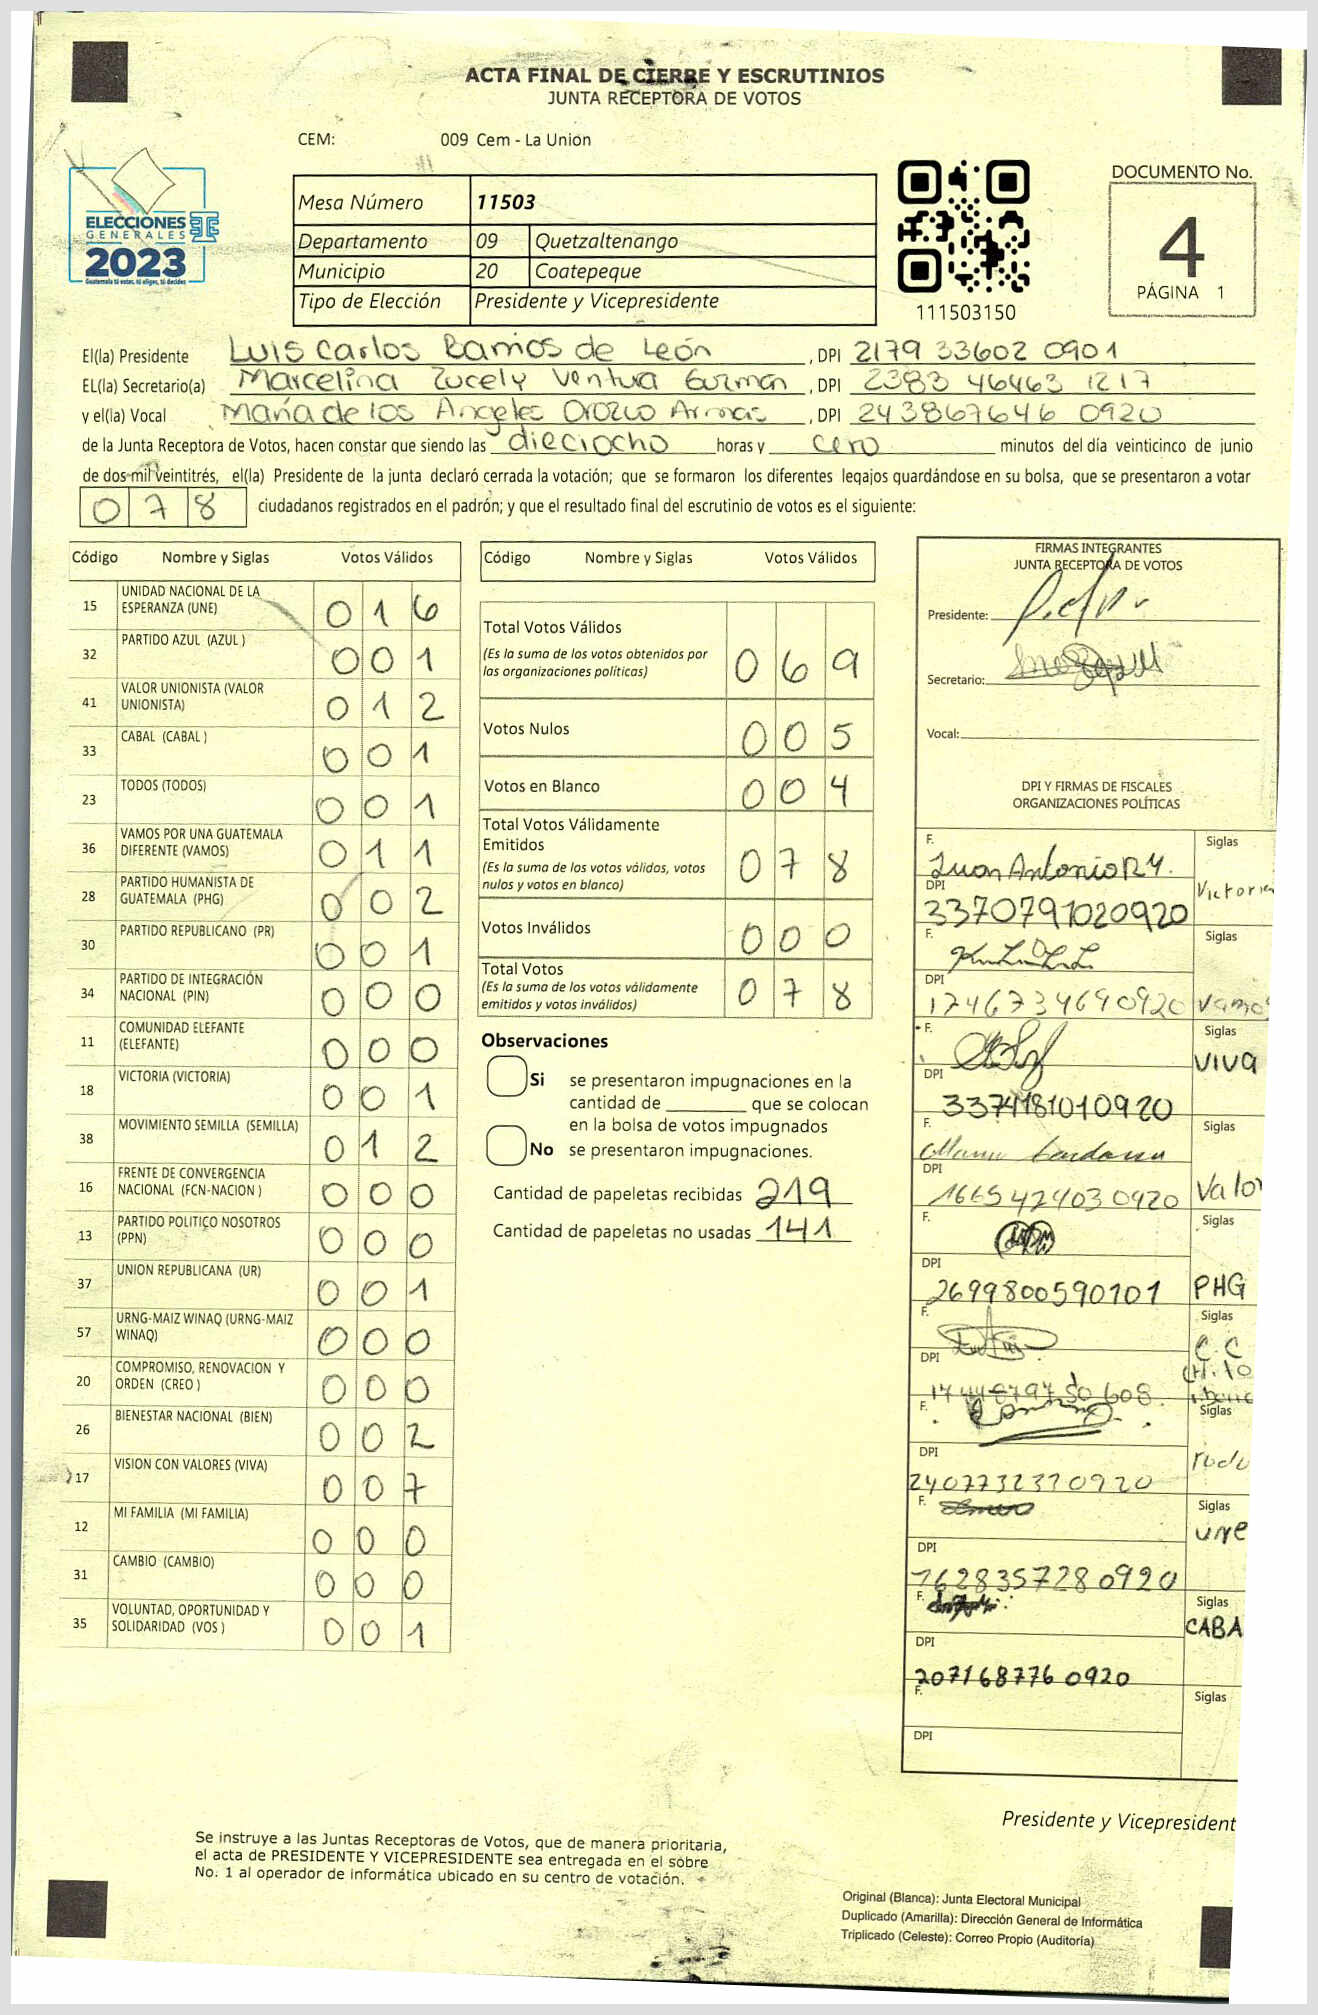 ACTA FINAL DE CIERRE Y ESCRUTINIOS
JUNTA RECEPTORA DE VOTOS
CEM: 009 Cem - La Union
ELECCIONES
GENERALES
2023
Guatemala tú votas, tú eliges, tú decides
Mesa Número 11503
Departamento 09 Quetzaltenango
Municipio 20 Coatepeque
Tipo de Elección Presidente y Vicepresidente
111503150
DOCUMENTO No.
4
PÁGINA 1
El(la) Presidente Luis Carlos Ramos de León, DPI 2179 33602 0901
EL(la) Secretario(a) Marcelina Zucely Ventura Guzmán, DPI 2383 46463 1217
y el(la) Vocal María de los Angeles Orozco Armas, DPI 243867646 0920
de la Junta Receptora de Votos, hacen constar que siendo las dieciocho horas y cero minutos del día veinticinco de junio
de dos mil veintitrés, el(la) Presidente de la junta declaró cerrada la votación; que se formaron los diferentes legajos guardándose en su bolsa, que se presentaron a votar
078 ciudadanos registrados en el padrón; y que el resultado final del escrutinio de votos es el siguiente:
Código Nombre y Siglas Votos Válidos
15 UNIDAD NACIONAL DE LA ESPERANZA (UNE) 016
32 PARTIDO AZUL (AZUL ) 001
41 VALOR UNIONISTA (VALOR UNIONISTA) 012
33 CABAL (CABAL ) 001
23 TODOS (TODOS) 001
36 VAMOS POR UNA GUATEMALA DIFERENTE (VAMOS) 011
28 PARTIDO HUMANISTA DE GUATEMALA (PHG) 002
30 PARTIDO REPUBLICANO (PR) 001
34 PARTIDO DE INTEGRACIÓN NACIONAL (PIN) 000
11 COMUNIDAD ELEFANTE (ELEFANTE) 000
18 VICTORIA (VICTORIA) 001
38 MOVIMIENTO SEMILLA (SEMILLA) 012
16 FRENTE DE CONVERGENCIA NACIONAL (FCN-NACION ) 000
13 PARTIDO POLITICO NOSOTROS (PPN) 000
37 UNION REPUBLICANA (UR) 001
57 URNG-MAIZ WINAQ (URNG-MAIZ WINAQ) 000
20 COMPROMISO, RENOVACION Y ORDEN (CREO ) 000
26 BIENESTAR NACIONAL (BIEN) 002
17 VISION CON VALORES (VIVA) 007
12 MI FAMILIA (MI FAMILIA) 000
31 CAMBIO (CAMBIO) 000
35 VOLUNTAD, OPORTUNIDAD Y SOLIDARIDAD (VOS ) 001
Código Nombre y Siglas Votos Válidos
Total Votos Válidos 069
(Es la suma de los votos obtenidos por
las organizaciones politicas)
Votos Nulos 005
Votos en Blanco 004
Total Votos Válidamente
Emitidos 078
(Es la suma de los votos válidos, votos
nulos y votos en blanco)
Votos Inválidos 000
Total Votos 078
(Es la suma de los votos válidamente
emitidos y votos inválidos)
Observaciones
Si se presentaron impugnaciones en la
cantidad de ________ que se colocan
en la bolsa de votos impugnados
No se presentaron impugnaciones.
Cantidad de papeletas recibidas 219
Cantidad de papeletas no usadas 141
FIRMAS INTEGRANTES
JUNTA RECEPTORA DE VOTOS
Presidente:
Secretario:
Vocal:
DPI Y FIRMAS DE FISCALES
ORGANIZACIONES POLÍTICAS
F. Juan Antonio R Y. Siglas
DPI 3370791020920 Victoria
F. Siglas
DPI 1746734690920 Vamos
F. Siglas
DPI 3374181010920 VIVA
F. Siglas
DPI 1665424030920 Valor
F. Siglas
DPI 2699800590101 PHG
F. Siglas
DPI C.C
F. Siglas
DPI 2407732370920
F. Siglas
DPI 7628357280920 UNE
F. Siglas
DPI 207168776 0920 CABA
F. Siglas
DPI
Presidente y Vicepresident
Se instruye a las Juntas Receptoras de Votos, que de manera prioritaria,
el acta de PRESIDENTE Y VICEPRESIDENTE sea entregada en el sobre
No. 1 al operador de informática ubicado en su centro de votación.
Original (Blanca): Junta Electoral Municipal
Duplicado (Amarilla): Dirección General de Informática
Triplicado (Celeste): Correo Propio (Auditoría)